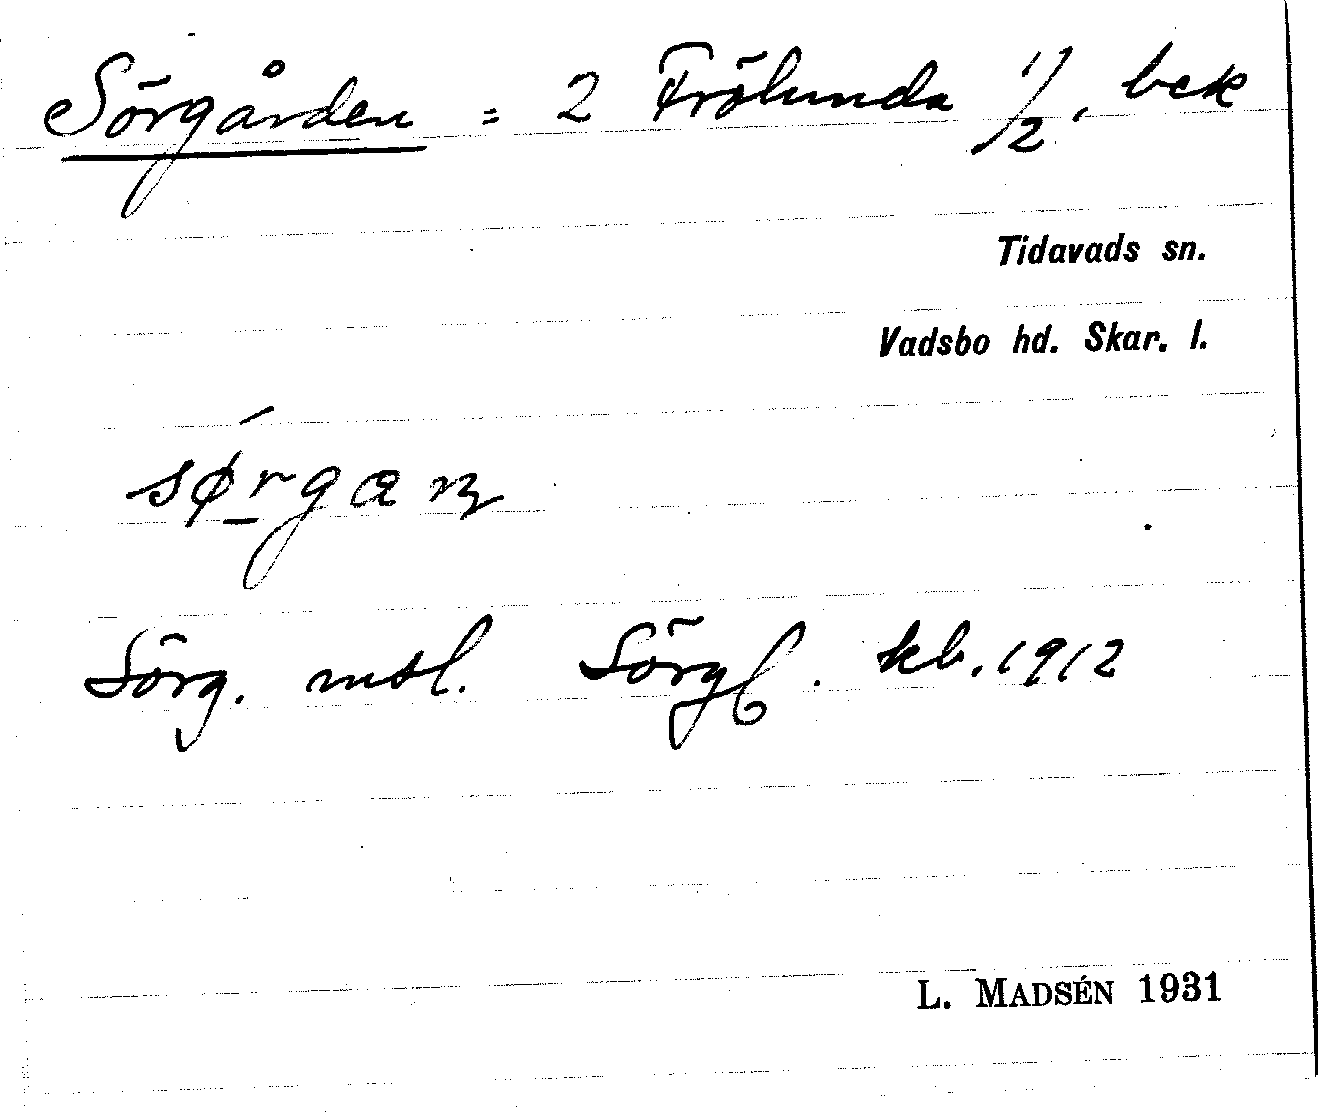 Sörgården = 2 Frölunda 1/2, bek
Tidavads sn.
Vadsbo hd. Skar. l.
sørgan
Sörg. mtl. Sörg. kb. 1912
L. MADSÉN 1931